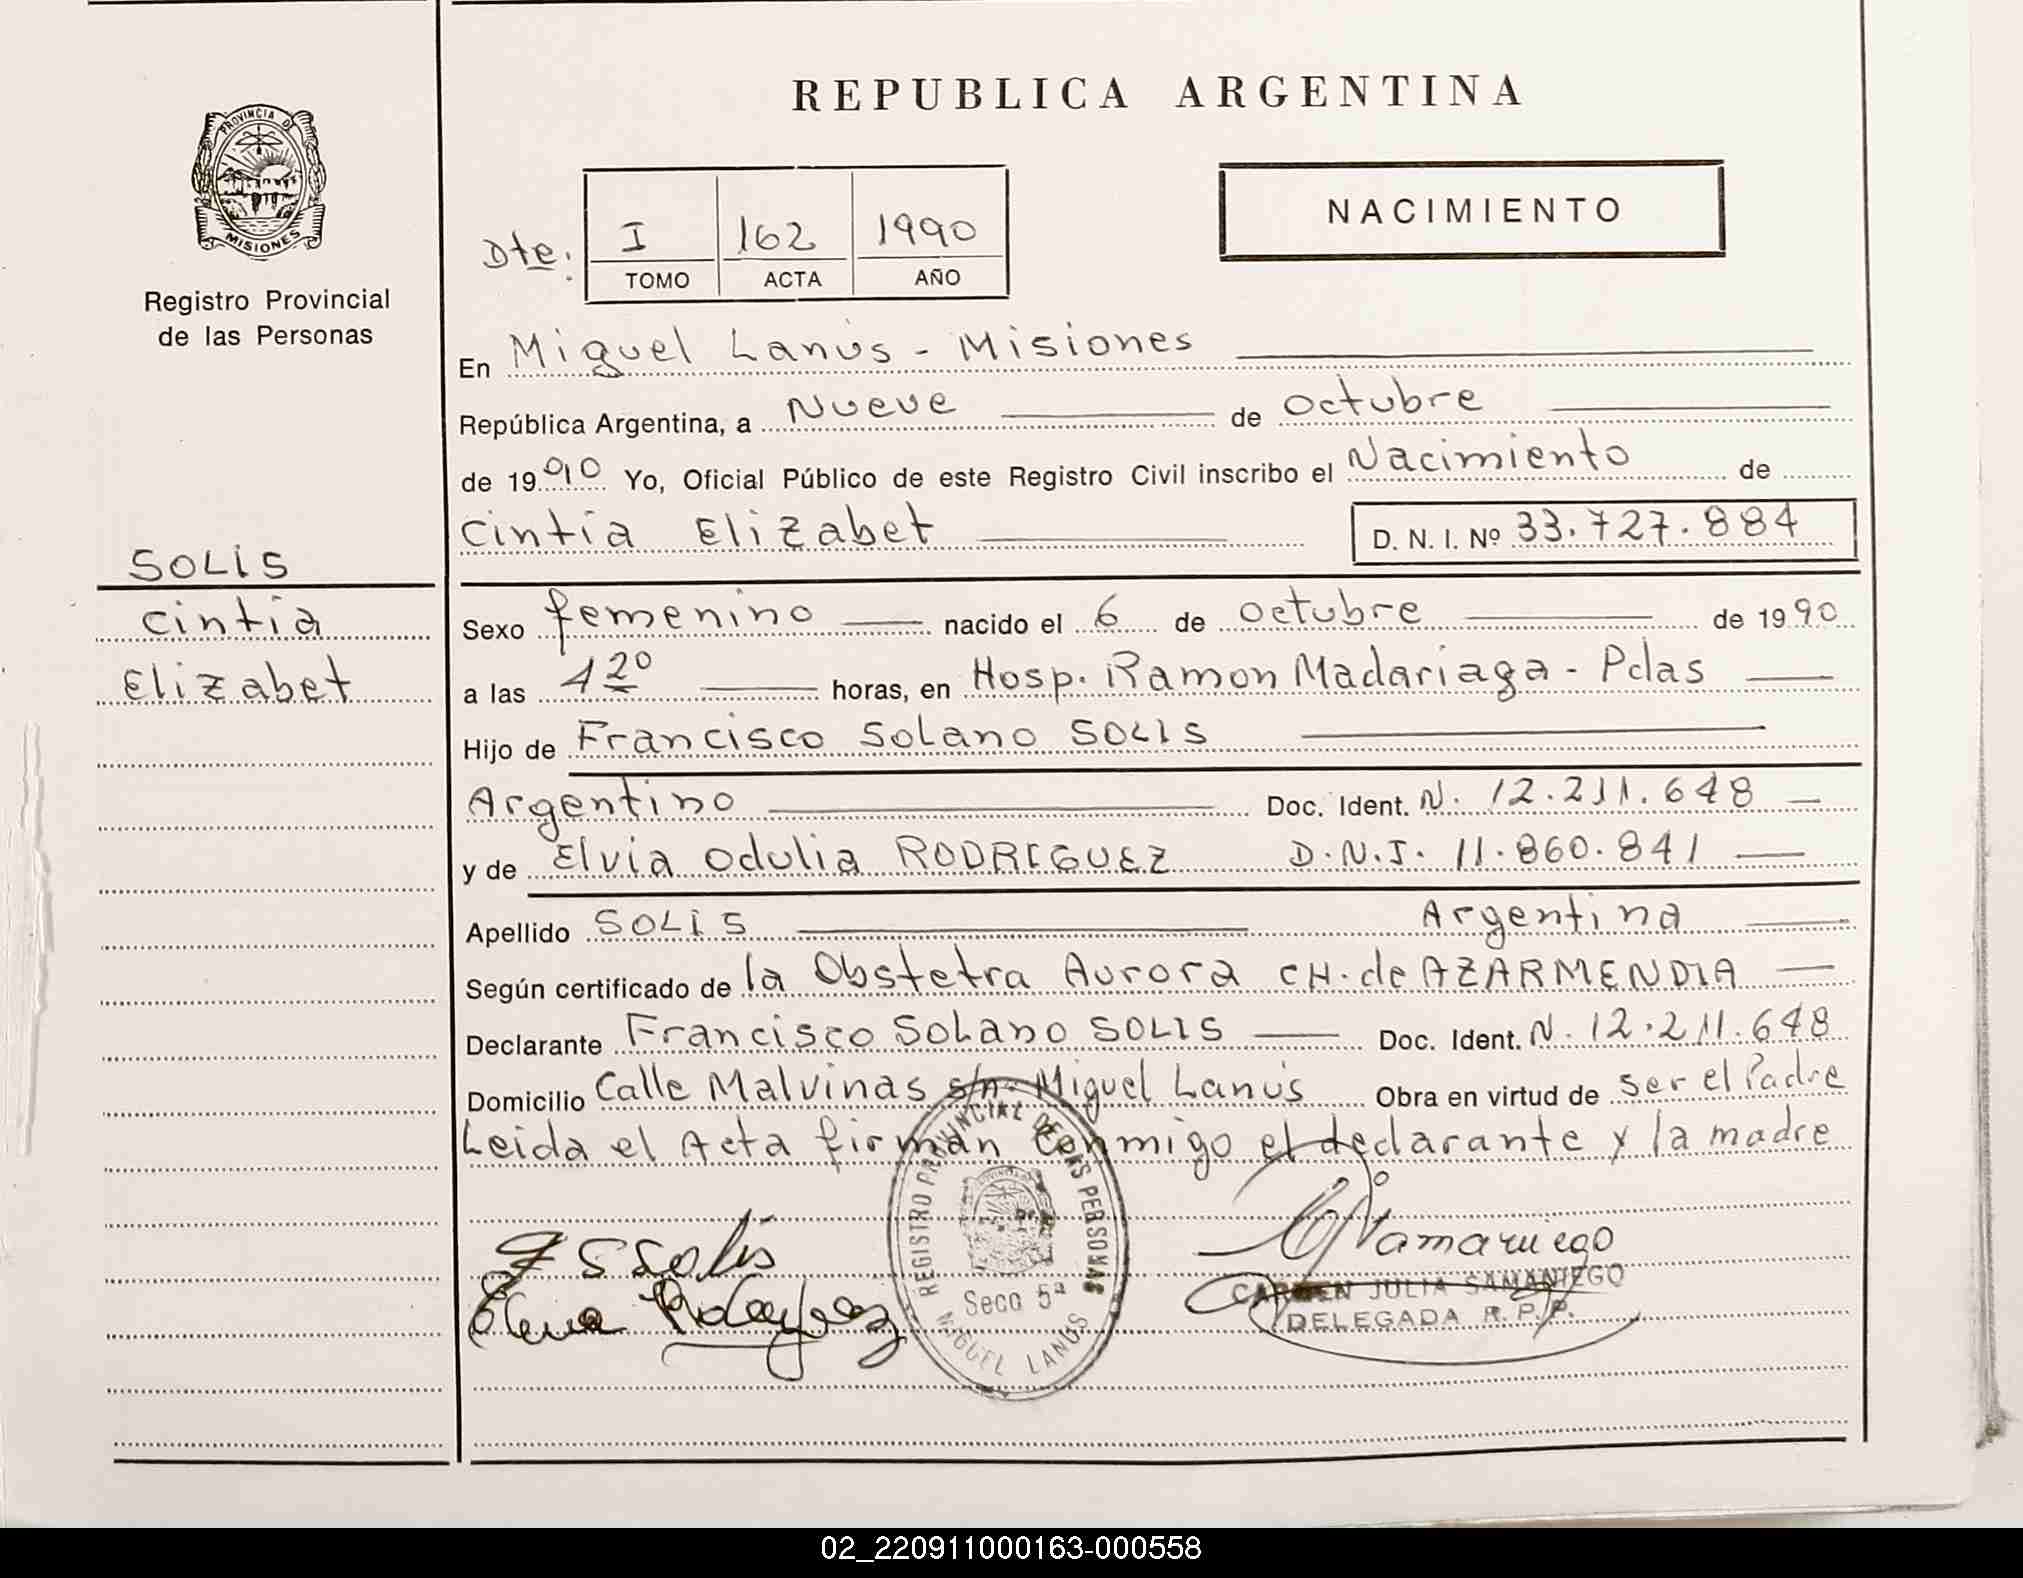 REPUBLICA ARGENTINA
PROVINCIA DE
MISIONES
Registro Provincial
de las Personas
Dte: I 162 1990
TOMO ACTA AÑO
NACIMIENTO
En Miguel Lanús - Misiones
República Argentina, a Nueve de octubre
de 1990 Yo, Oficial Público de este Registro Civil inscribo el Nacimiento de
Cintia Elizabet D. N. I. Nº 33.727.884
SOLIS
Cintia
Elizabet
Sexo femenino nacido el 6 de octubre de 1990
a las 120 horas, en Hosp. Ramon Madariaga - Pdas
Hijo de Francisco Solano SOLIS
Argentino Doc. Ident. N. 12.211.648
y de Elvia Odulia RODRIGUEZ D.N.I. 11.860.841
Apellido SOLIS Argentina
Según certificado de la Obstetra Aurora CH. de AZARMENDIA
Declarante Francisco Solano SOLIS Doc. Ident. N. 12.211.648
Domicilio Calle Malvinas s/n. Miguel Lanús Obra en virtud de ser el Padre
Leida el Acta firman conmigo el declarante y la madre
F S Solis
Rodriguez
REGISTRO PROVINCIAL DE LAS PERSONAS
Secc 5ª
MIGUEL LANUS
Samaniego
CARMEN JULIA SAMANIEGO
DELEGADA R.P.P.
02_220911000163-000558